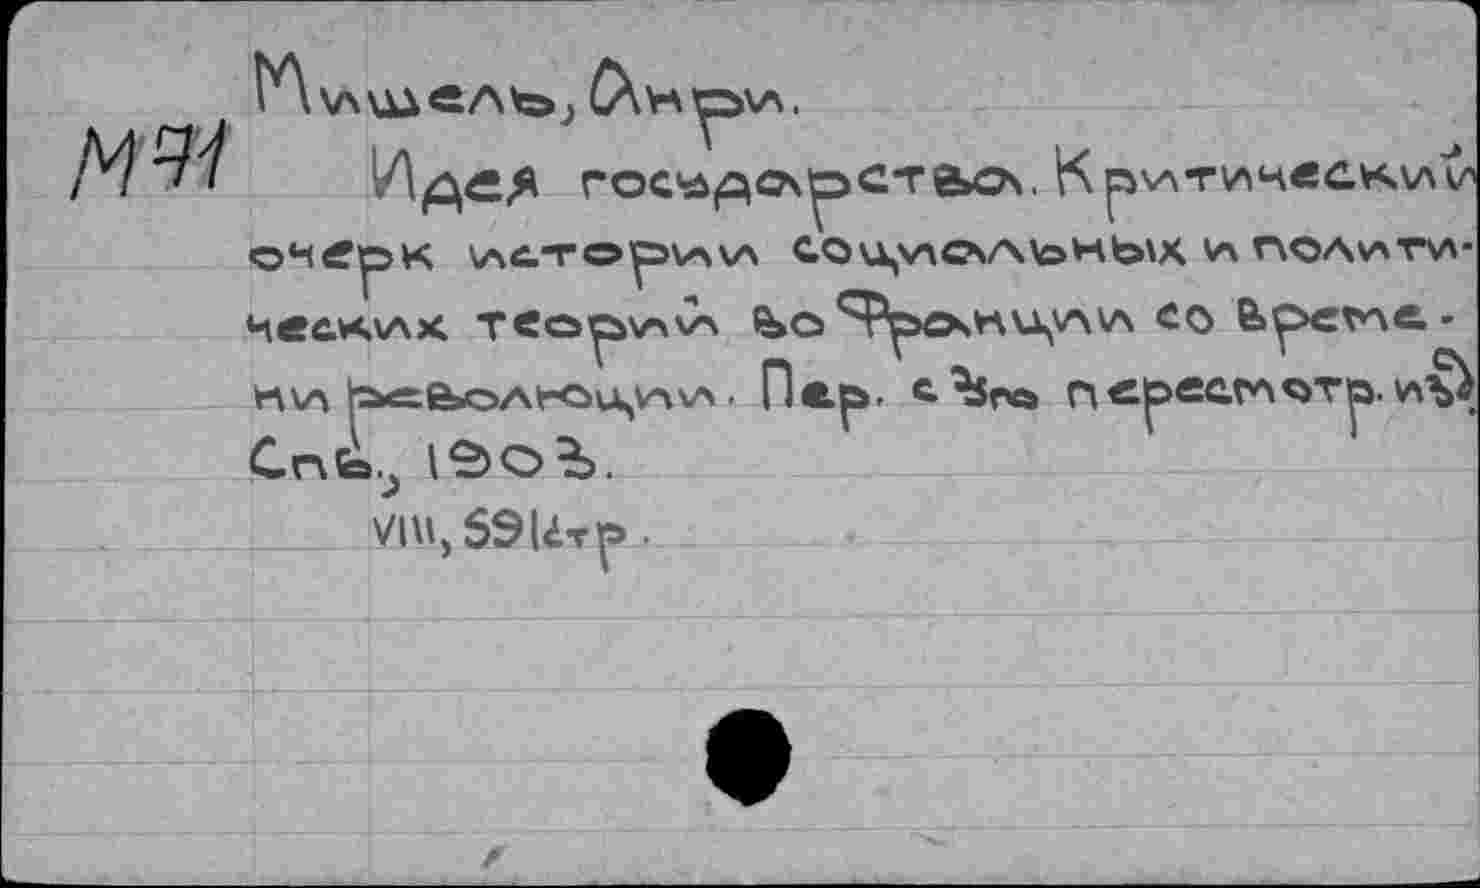 М91
Мишель, Анри.
Идея государства. Критический
очерк истории социальных и полити-
ческих теорий во Франции со време-
ни революции. Пер. с 3го пересмотр. изд.
Спб., 1903.
VIII, 591 стр.